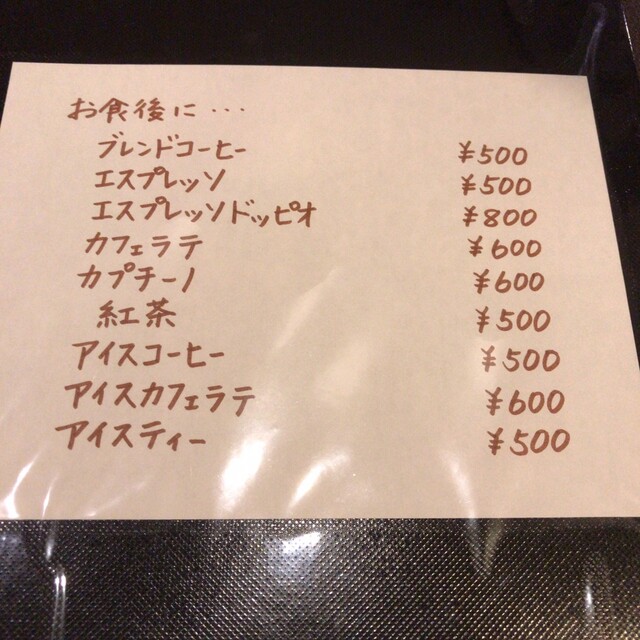 お食後に・・・
ブレンドコーヒー ¥500
エスプレッソ ¥500
エスプレッソドッピオ ¥800
カフェラテ ¥600
カプチーノ ¥600
紅茶 ¥500
アイスコーヒー ¥500
アイスカフェラテ ¥600
アイスティー ¥500